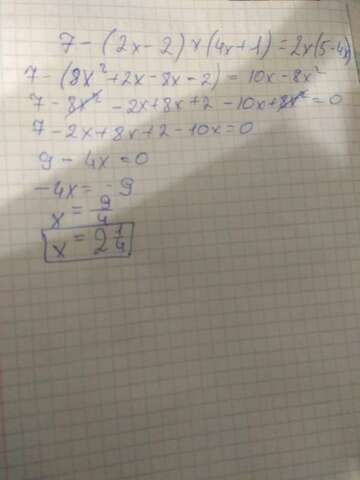 7 - (2x - 2) × (4x + 1) = 2x(5 - 4x)
7 - (8x² + 2x - 8x - 2) = 10x - 8x²
7 - 8x² - 2x + 8x + 2 - 10x + 8x² = 0
7 - 2x + 8x + 2 - 10x = 0
9 - 4x = 0
-4x = -9
x = 9/4
x = 2 1/4